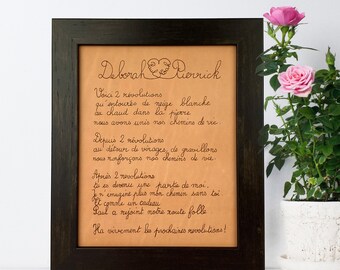 Deborah Pierrick
Voici 2 révolutions
qu'entourés de neige blanche
au chaud dans la pierre
nous avons unis nos chemins de vie...
Depuis 2 révolutions
au détour de virages, de grenillons
nous renforçons nos chemins de vie.
Après 2 révolutions
tu es devenu une partie de moi..
Je n'imagine plus mon chemin sans toi
Et comme un cadeau
Paul a rejoint notre route folle
Ha vivement les prochaines révolutions !